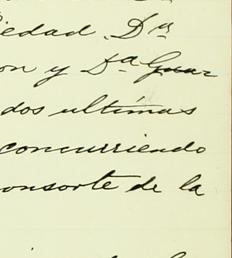 iedad, Dⁿ
on y Dᵃ
dos ultimas
concurriendo
onsorte de la